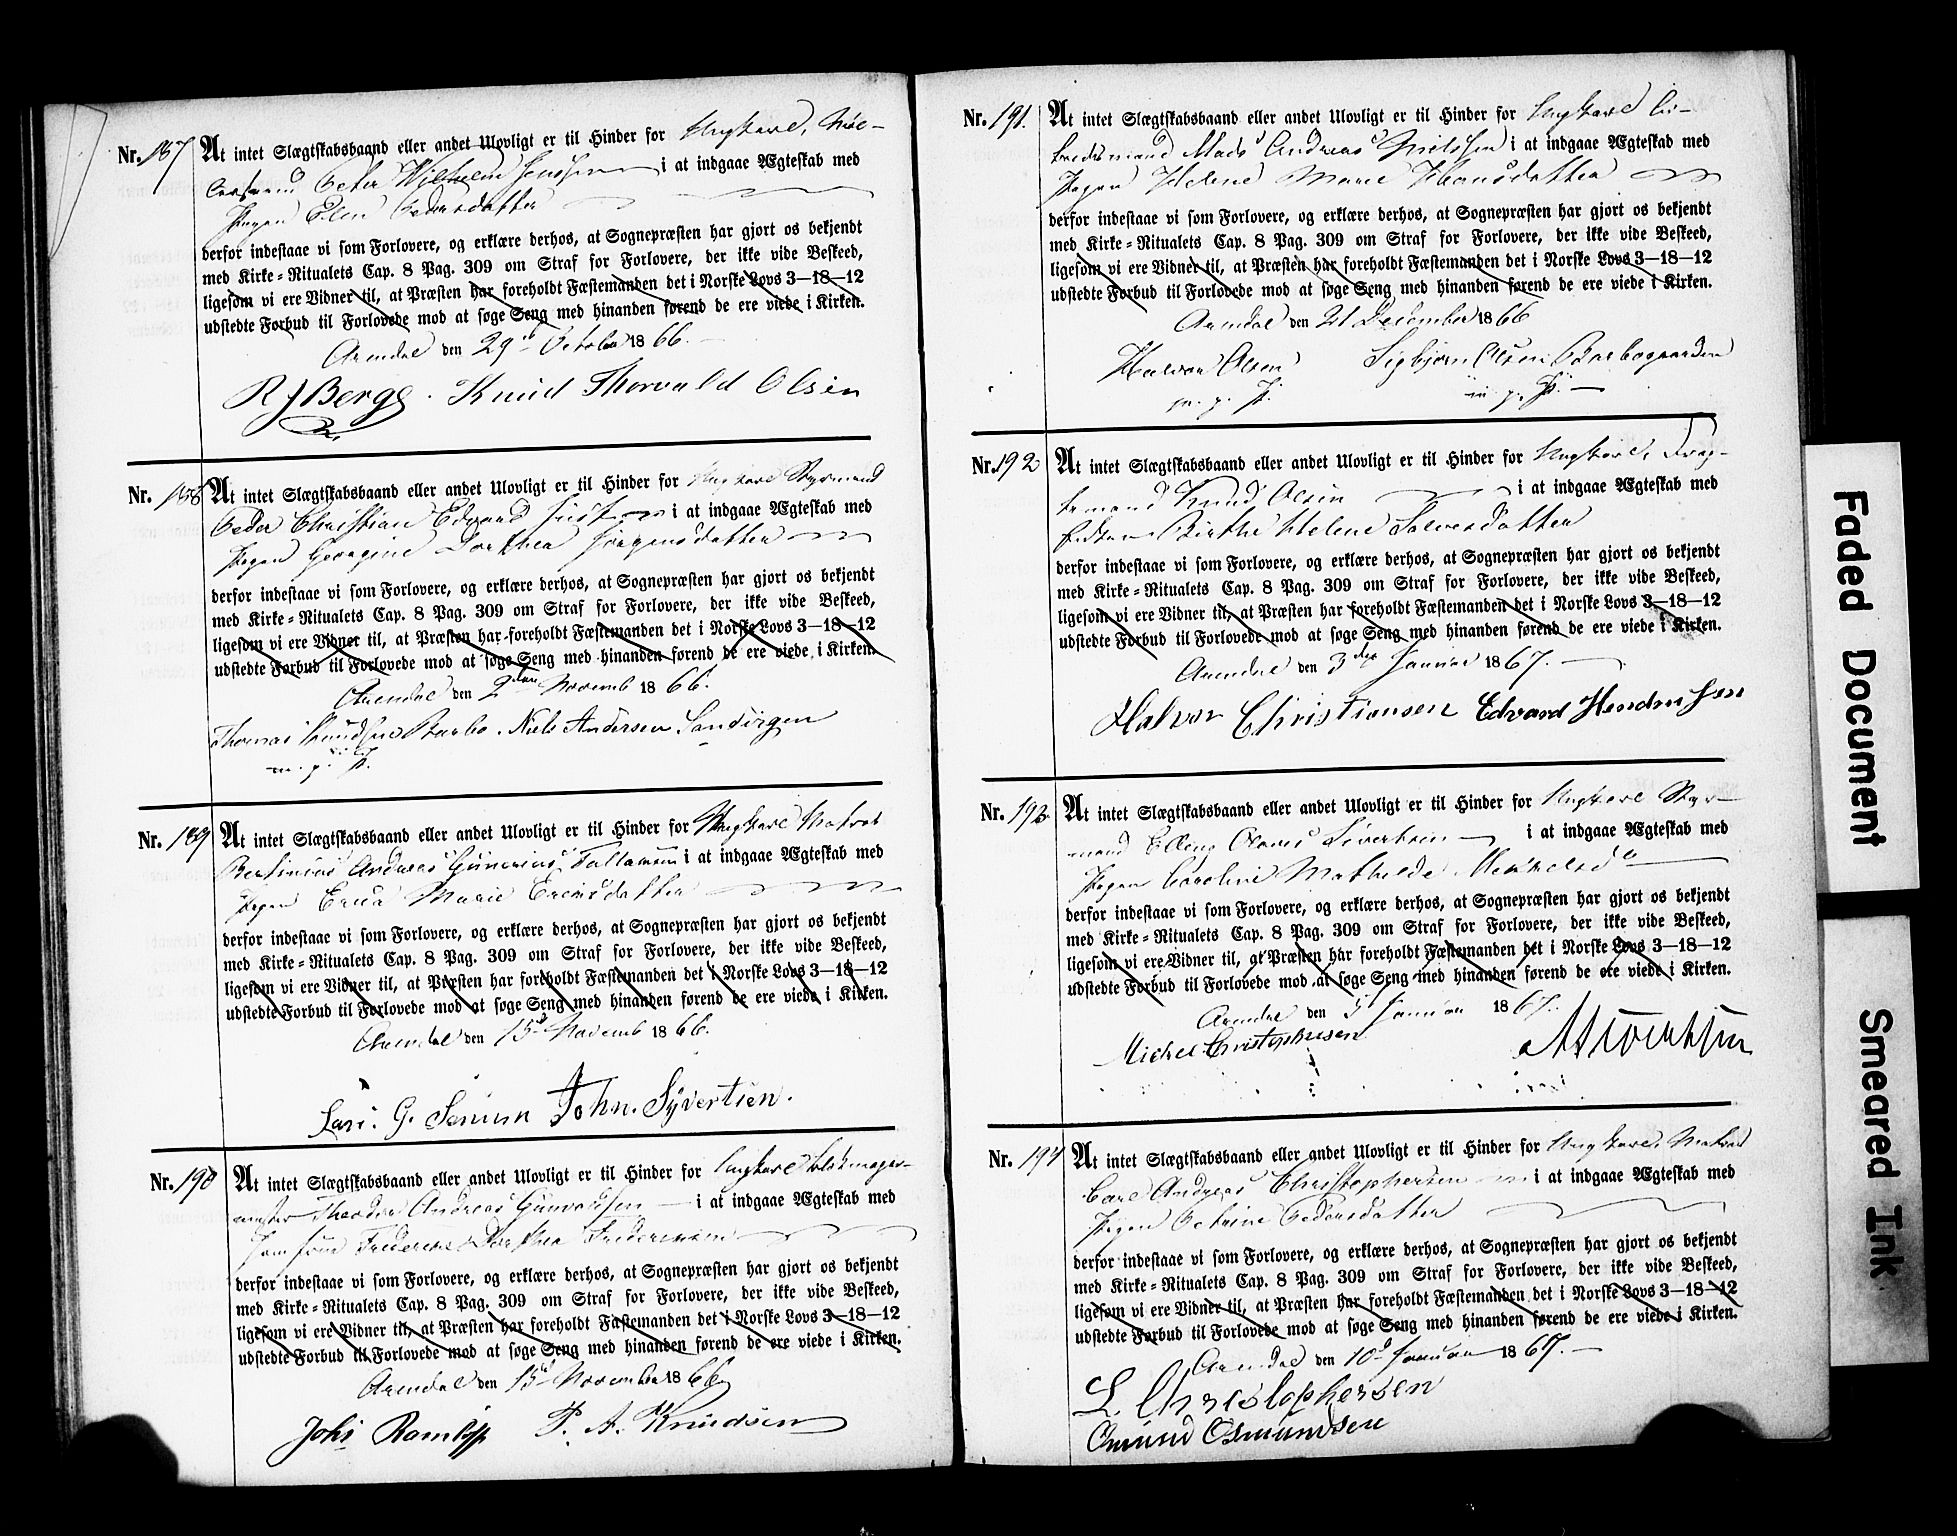 Nr. 187 At intet Slægtskabsbaand eller andet Ulovligt er til Hinder for Ungkarl,
Peter Wilhelm Jenssen i at indgaae Ægteskab med
Pigen Elen Pedersdatter
derfor indestaae vi som Forlovere, og erklære derhos, at Sognepræsten har gjort os bekjendt
med Kirke=Ritualets Cap. 8 Pag. 309 om Straf for Forlovere, der ikke vide Beskeed,
ligesom vi ere Vidner til, at Præsten har foreholdt Fæstemanden det i Norske Lovs 3—18—12
udstedte Forbud til Forlovede mod at søge Seng med hinanden førend de ere viede i Kirken.
Arendal den 29d October 1866.
R J Berge. Knud Thorvald Olsen
Nr. 188 At intet Slægtskabsbaand eller andet Ulovligt er til Hinder for Ungkarl Styrmand
Peder Christian Edvard Just i at indgaae Ægteskab med
Pigen Georgine Dorthea Jørgensdatter
derfor indestaae vi som Forlovere, og erklære derhos, at Sognepræsten har gjort os bekjendt
med Kirke=Ritualets Cap. 8 Pag. 309 om Straf for Forlovere, der ikke vide Beskeed,
ligesom vi ere Vidner til, at Præsten har foreholdt Fæstemanden det i Norske Lovs 3—18—12
udstedte Forbud til Forlovede mod at søge Seng med hinanden førend de ere viede i Kirken.
Arendal den 2den Novemb 1866.
Thomas Knudsen Barbo. Niels Andersen Sandvigen
m. p. P.
Nr. 189 At intet Slægtskabsbaand eller andet Ulovligt er til Hinder for Ungkarl Matros
Bertinius Andreas Gunerius Tallaksen i at indgaae Ægteskab med
Pigen Marie
derfor indestaae vi som Forlovere, og erklære derhos, at Sognepræsten har gjort os bekjendt
med Kirke=Ritualets Cap. 8 Pag. 309 om Straf for Forlovere, der ikke vide Beskeed,
ligesom vi ere Vidner til, at Præsten har foreholdt Fæstemanden det i Norske Lovs 3—18—12
udstedte Forbud til Forlovede mod at søge Seng med hinanden førend de ere viede i Kirken.
Arendal den 15d Novemb 1866.
Lars. G. John. Syvertsen.
Nr. 190 At intet Slægtskabsbaand eller andet Ulovligt er til Hinder for Ungkarl Blokmager-
mester Theodor Andreas i at indgaae Ægteskab med
Jomfrue Dorthea
derfor indestaae vi som Forlovere, og erklære derhos, at Sognepræsten har gjort os bekjendt
med Kirke=Ritualets Cap. 8 Pag. 309 om Straf for Forlovere, der ikke vide Beskeed,
ligesom vi ere Vidner til, at Præsten har foreholdt Fæstemanden det i Norske Lovs 3—18—12
udstedte Forbud til Forlovede mod at søge Seng med hinanden førend de ere viede i Kirken.
Arendal den 15d November 1866
Johs P. A. Knudsen
Nr. 191. At intet Slægtskabsbaand eller andet Ulovligt er til Hinder for Ungkarl
Mads Andreas Nielssen i at indgaae Ægteskab med
Pigen Helene Marie Hansdatter
derfor indestaae vi som Forlovere, og erklære derhos, at Sognepræsten har gjort os bekjendt
med Kirke=Ritualets Cap. 8 Pag. 309 om Straf for Forlovere, der ikke vide Beskeed,
ligesom vi ere Vidner til, at Præsten har foreholdt Fæstemanden det i Norske Lovs 3—18—12
udstedte Forbud til Forlovede mod at søge Seng med hinanden førend de ere viede i Kirken.
Arendal den 21 December 1866
Halvor Olsen Sigbjørn Olsen Barbogaarden
m. p. P. m. p. P.
Nr. 192 At intet Slægtskabsbaand eller andet Ulovligt er til Hinder for Ungkarl,
Knud Olsen i at indgaae Ægteskab med
Birthe Helene Salvesdatter
derfor indestaae vi som Forlovere, og erklære derhos, at Sognepræsten har gjort os bekjendt
med Kirke=Ritualets Cap. 8 Pag. 309 om Straf for Forlovere, der ikke vide Beskeed,
ligesom vi ere Vidner til, at Præsten har foreholdt Fæstemanden det i Norske Lovs 3—18—12
udstedte Forbud til Forlovede mod at søge Seng med hinanden førend de ere viede i Kirken.
Arendal den 3die Januar 1867.
Halvor Christiansen Edvard Hendrichsen
Nr. 193. At intet Slægtskabsbaand eller andet Ulovligt er til Hinder for Ungkarl Styr-
mand Elling Olaves Sivertsen i at indgaae Ægteskab med
Pigen Caroline Mathilde
derfor indestaae vi som Forlovere, og erklære derhos, at Sognepræsten har gjort os bekjendt
med Kirke=Ritualets Cap. 8 Pag. 309 om Straf for Forlovere, der ikke vide Beskeed,
ligesom vi ere Vidner til, at Præsten har foreholdt Fæstemanden det i Norske Lovs 3—18—12
udstedte Forbud til Forlovede mod at søge Seng med hinanden førend de ere viede i Kirken.
Arendal den 5 Januar 1867.
Michel Christophersen
Nr. 194 At intet Slægtskabsbaand eller andet Ulovligt er til Hinder for Ungkarl, Matros
Carl Andreas Christophersen i at indgaae Ægteskab med
Pigen Petrine Pedersdatter
derfor indestaae vi som Forlovere, og erklære derhos, at Sognepræsten har gjort os bekjendt
med Kirke=Ritualets Cap. 8 Pag. 309 om Straf for Forlovere, der ikke vide Beskeed,
ligesom vi ere Vidner til, at Præsten har foreholdt Fæstemanden det i Norske Lovs 3—18—12
udstedte Forbud til Forlovede mod at søge Seng med hinanden førend de ere viede i Kirken.
Arendal den 10d Januar 1867.
L. Christophersen
Osmundsen
Faded Document
Smeared Ink